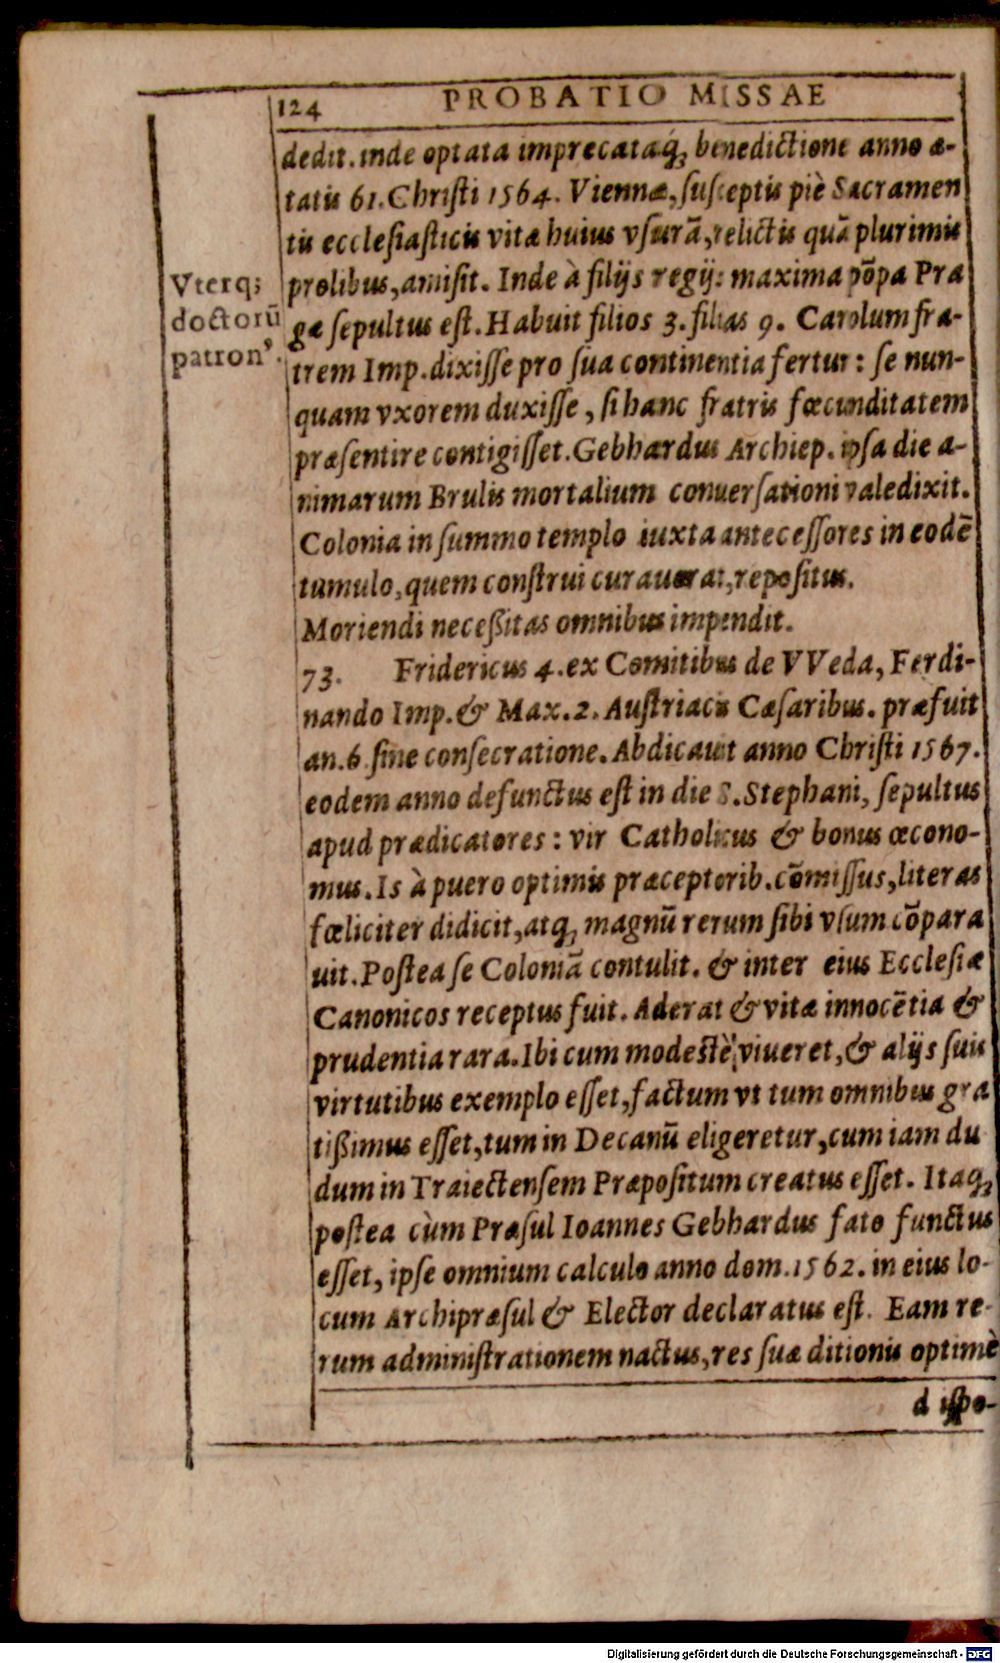 124 PROBATIO MISSAE
dedit. inde optata imprecataq́ꝫ benedictione anno æ-
tatis 61. Christi 1564. Viennæ, susceptis piè Sacramen
tis ecclesiasticis vitæ huius vsurā, relictis quā plurimis
prolibus, amisit. Inde à filijs regijs maxima pōpa Pra
gæ sepultus est. Habuit filios 3. filias 9. Carolum fra-
trem Imp. dixisse pro sua continentia fertur: se nun-
quam vxorem duxisse, si hanc fratris fœcunditatem
præsentire contigisset. Gebhardus Archiep. ipsa die a-
nimarum Brulis mortalium conuersationi valedixit.
Colonia in summo templo iuxta antecessores in eodē
tumulo, quem construi curauerat, repositus.
Moriendi neceßitas omnibus impendit.
73. Fridericus 4. ex Comitibus de VVeda, Ferdi-
nando Imp. & Max. 2. Austriacis Cæsaribus. præfuit
an. 6. sine consecratione. Abdicauit anno Christi 1567.
eodem anno defunctus est in die S. Stephani, sepultus
apud prædicatores: vir Catholicus & bonus œcono-
mus. Is à puero optimis præceptorib. cōmissus, literas
fœliciter didicit, atqꝫ magnū rerum sibi vsum cōpara
uit. Postea se Coloniā contulit. & inter eius Ecclesiæ
Canonicos receptus fuit. Aderat & vitæ innocētia &
prudentia rara. Ibi cum modestè viueret, & alijs suis
virtutibus exemplo esset, factum vt tum omnibus gra
tißimus esset, tum in Decanū eligeretur, cum iam du
dum in Traiectensem Præpositum creatus esset. Itaqꝫ
postea cùm Præsul Ioannes Gebhardus fato functus
esset, ipse omnium calculo anno dom. 1562. in eius lo-
cum Archipræsul & Elector declaratus est. Eam re-
rum administrationem nactus, res suæ ditionis optimè
dispo-
Vterq;
doctorū
patronꝰ.
Digitalisierung gefördert durch die Deutsche Forschungsgemeinschaft - DFG